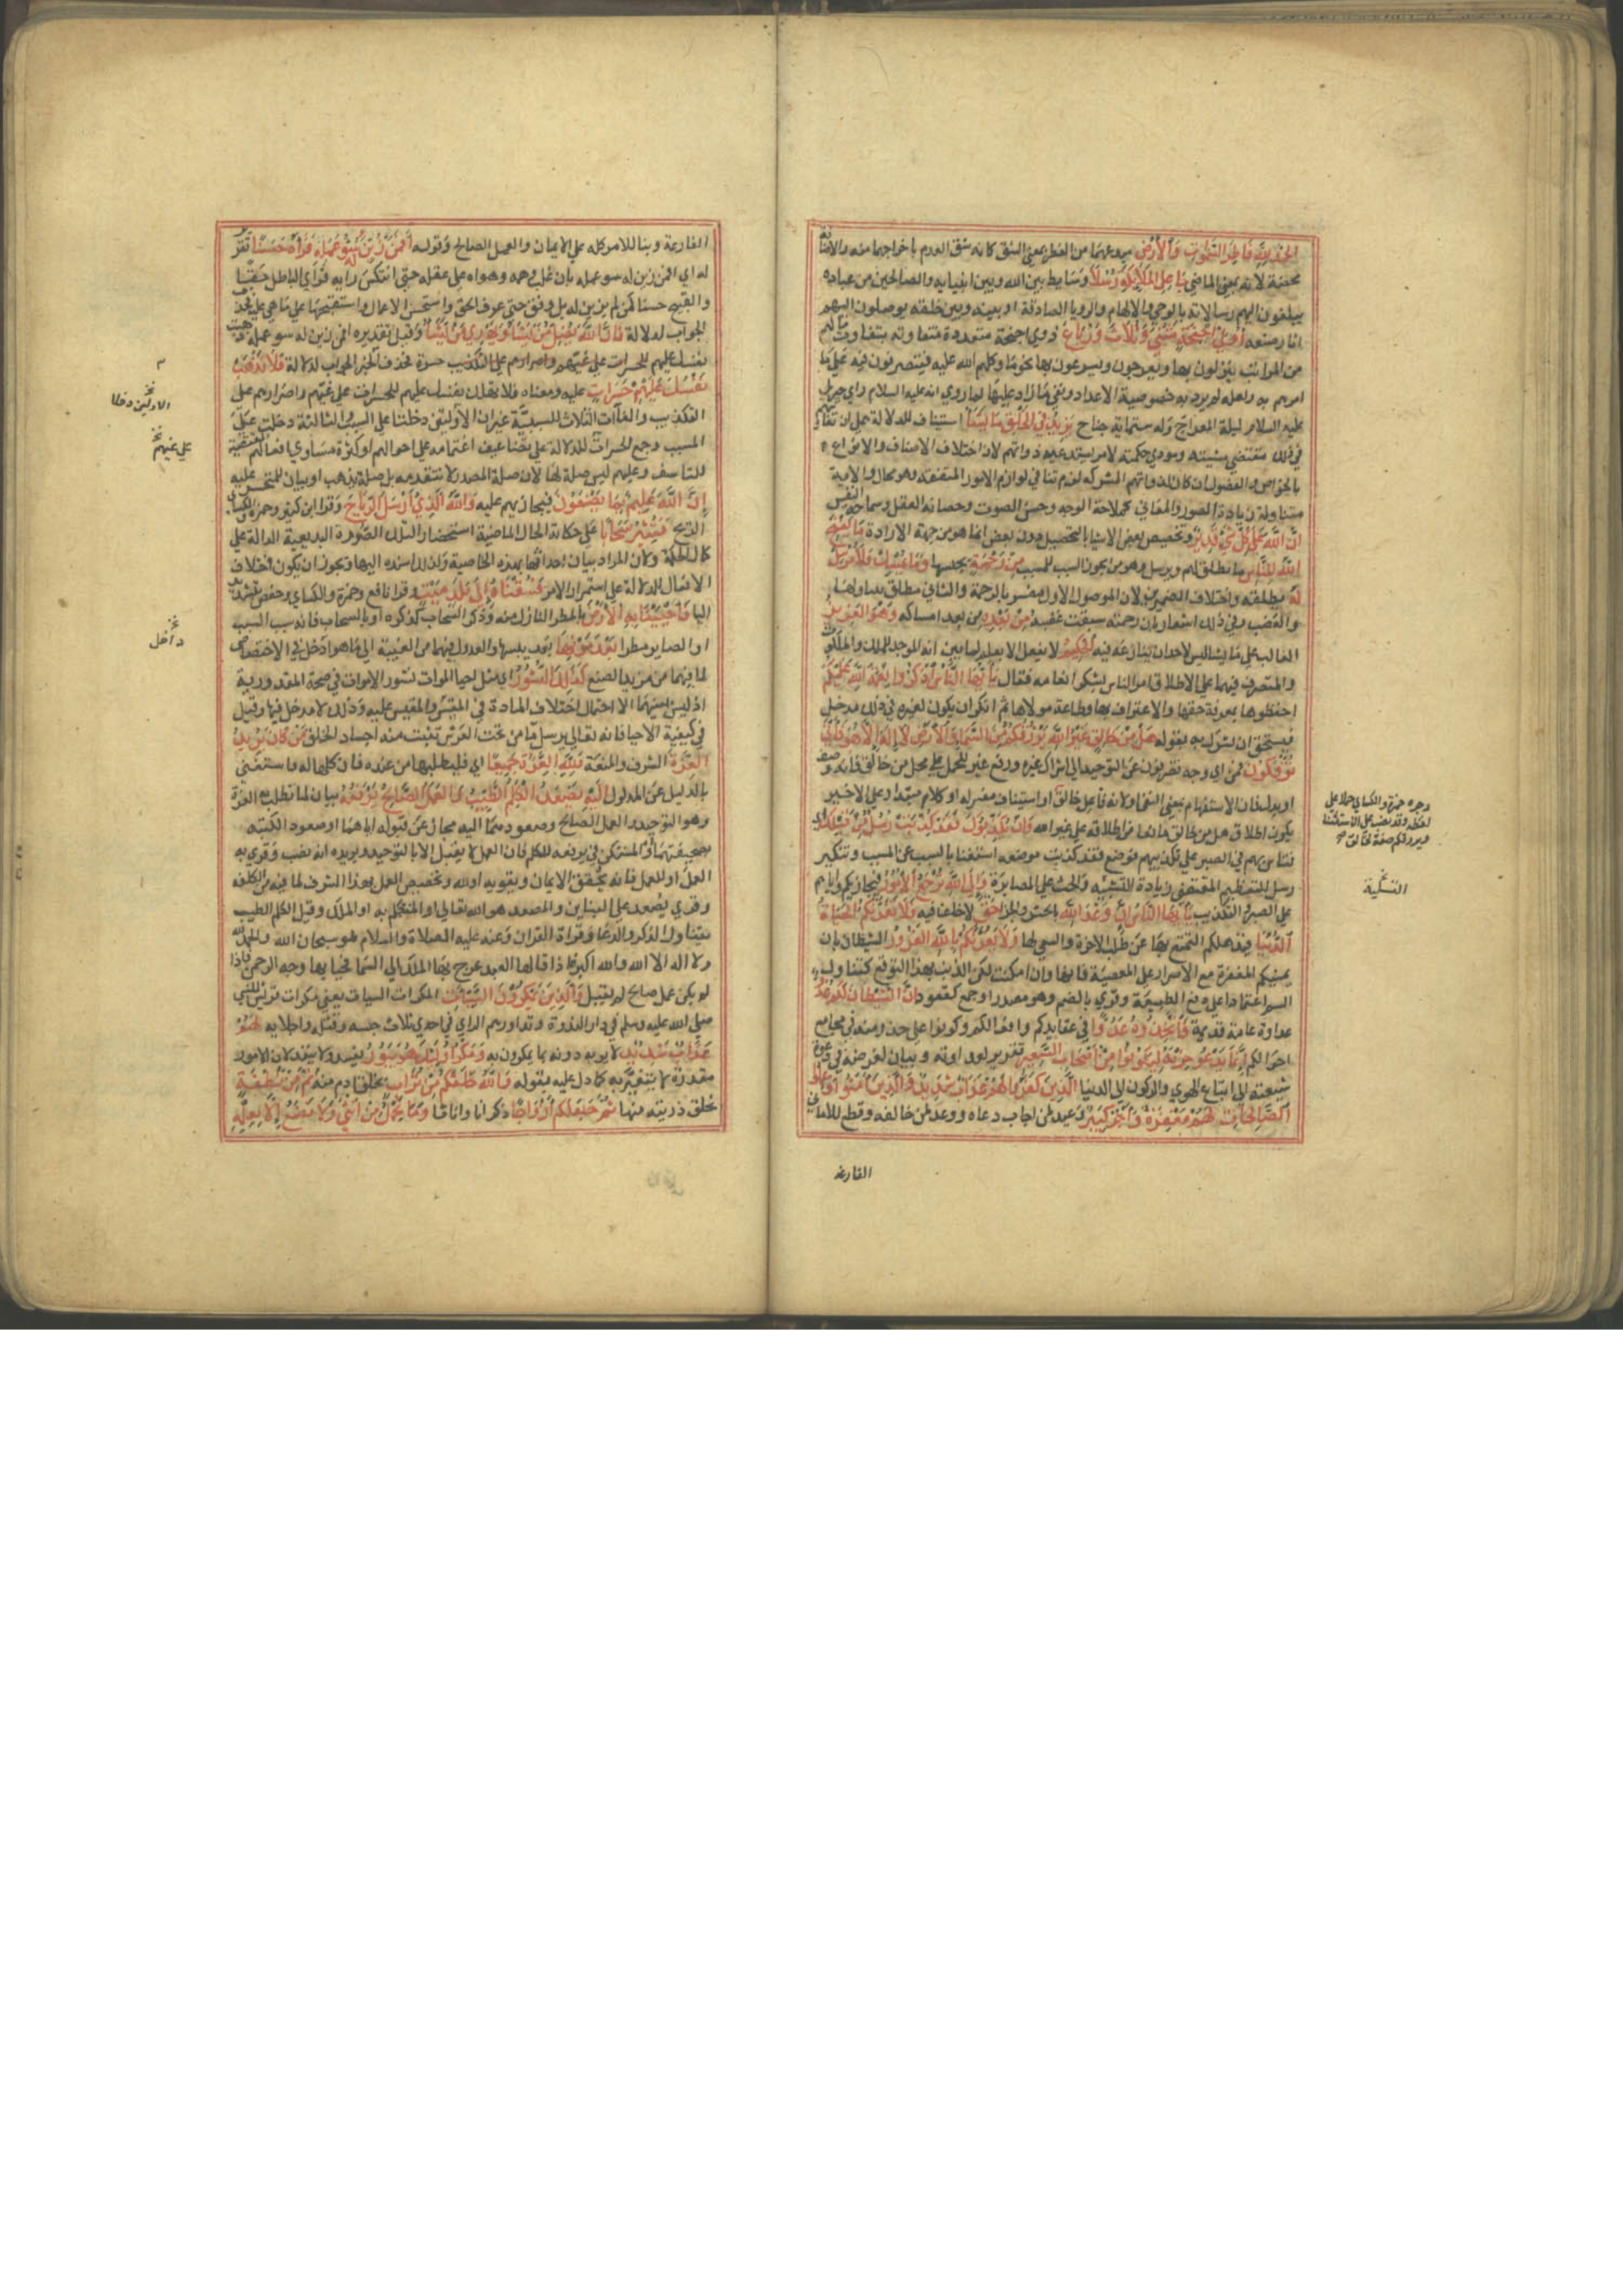 الحمد لله فاطر السموات والأرض مبدعهما من الفطر بمعنى الشق كانه شق العدم باخراجهما منه والاضافة
محضة لانه بمعنى الماضي جاعل الملائكة رسلا وسايط بين الله وبين انبيايه والصالحين من عباده
يبلغون اليهم رسالاته بالوحي والالهام والرويا الصادقة او بينه وبين خلقه يوصلون اليهم
اثار صنعه أولي أجنحة مثنى وثلاث ورباع ذوي اجنحة متعددة متفاوته بتفاوت مالهم
من المراتب ينزلون بها ويعرجون او يسرعون بها نحو ما وكلهم الله عليه فيتصرفون فيه على ما
امرهم به ولعله لم يرد به خصوصية الاعداد ونفي ما زاد عليها لما روي انه عليه السلام راي جبريل
عليه السلام ليلة المعراج وله ستماية جناح يزيد في الخلق ما يشا استيناف للدلالة على ان تفاوتهم
في ذلك مقتضى مشيته ومودي حكمته لا امر يستدعيه ذواتهم لان اختلاف الاصناف والانواع
بالخواص والفصول ان كان لذواتهم المشتركه لزم تنافي لوازم الامور المتفقة وهو محال والاية
متناولة زيادة الصور والمعاني كملاحة الوجه وحسن الصوت وحصافة العقل وسماحة النفس
ان الله على كل شي قدير وتخصيص بعض الاشيا بالتحصيل دون بعض انما هو من جهة الارادة ما يفتح
الله للناس ما يطلق لهم ويرسل وهو من تجوز السبب للمسبب من رحمة يحبسها وما يمسك فلا مرسل
له يطلقه واختلاف الضميرين لان الموصول الاول مفسر بالرحمة والثاني مطلق يتناولها
والغضب وفي ذلك اشعار بان رحمته سبقت غضبه من بعده من بعد امساكه وهو العزيز
الغالب على ما يشا ليس لاحد ان ينازعه فيه الحكيم لا يفعل الا بعلم لما بين انه الموجد للملك والملكوت
والمتصرف فيهما على الاطلاق امر الناس بشكر انعامه فقال يا أيها الناس اذكروا نعمة الله عليكم
احفظوها بمعرفة حقها والاعتراف بها وطاعة مولاها ثم انكر ان يكون لغيره في ذلك مدخل
فيستحق ان يشرك به بقوله هل من خالق غير الله يرزقكم من السماء والأرض لا إله إلا هو فأنى
تؤفكون فمن اي وجه تصرفون عن التوحيد الى اشراك غيره ورفع غير للحمل على محل من خالق فانه وصف
او بدل فان الاستفهام بمعنى النفي او لانه فاعل خالق او استيناف مفسر له او كلام مبتدا وعلى الاخير
يكون اطلاق هل من خالق مانعا من اطلاقه على غير الله وإن يكذبوك فقد كذبت رسل من قبلك اي
فتاس بهم في الصبر على تكذيبهم فوضع فقد كذبت موضعه استغنا بالسبب عن المسبب وتنكير
رسل للتعظيم المقتضي زيادة التسلية والحث على المصابرة وإلى الله ترجع الأمور فيجازيكم واياهم
على الصبر والتكذيب يا أيها الناس إن وعد الله بالحشر والجزا حق لا خلف فيه ولا تغرنكم الحياة
الدنيا فيذهلكم التمتع بها عن طلب الاخرة والسعي لها ولا يغرنكم بالله الغرور الشيطان بان
يمنيكم المغفرة مع الاصرار على المعصية فانها وان امكنت لكن الذنب بهذا التوقع كتناول
السم اعتمادا على دفع الطبيعة وقري بالضم وهو مصدر او جمع كقعود إن الشيطان لكم عدو
عداوة عامة قديمة فاتخذوه عدوا في عقايدكم وافعالكم وكونوا على حذر منه في مجامع
احوالكم إنما يدعو حزبه ليكونوا من أصحاب السعير تقرير لعداوته وبيان لغرضه في دعوة
شيعته الى اتباع الهوي والركون الى الدنيا الذين كفروا لهم عذاب شديد والذين آمنوا وعملوا
الصالحات لهم مغفرة وأجر كبير وعيد لمن اجاب دعاه ووعد لمن خالفه وقطع للاماني
الفارغة
وجره حمزة والكسائي حملا على
لفظه وقد نصب على الاستثنا
ويرزقكم صفة لخالق صح
التسلية
الفارغة وبنا للامر كله على الايمان والعمل الصالح وقوله أفمن زين له سوء عمله فرآه حسنا تقرير
له اي افمن زين له سو عمله بان غلب وهمه وهواه على عقله حتى انتكس رايه فراي الباطل حقا
والقبيح حسنا كمن لم يزين له بل وفق حتى عرف الحق واستحسن الاعمال واستقبحها على ما هي عليه فحذف
الجواب لدلالة فإن الله يضل من يشا ويهدي من يشا وقيل تقديره افمن زين له سو عمله ذهبت
نفسك عليهم حسرات على غيهم واصرارهم على التكذيب حسرة فحذف الخبر الجواب لدلالة فلا تذهب
نفسك عليهم حسرات عليه ومعناه فلا تهلك نفسك عليهم للحسرات على غيهم واصرارهم على
التكذيب والفاات الثلاث للسببية غير ان الاوليين دخلتا على السبب والثالثة دخلت على
المسبب وجمع الحسرات للدلالة على تضاعيف اغتمامه على احوالهم او كثرة مساوي افعالهم المقتضية
للتاسف وعليهم ليس صلة لها لان صلة المصدر لا تتقدمه بل صلة تذهب او بيان للمتحسر عليه
إن الله عليم بما يصنعون فيجازيهم عليه والله الذي أرسل الرياح وقرا ابن كثير وحمزة والكسائي
الريح فتثير سحابا على حكاية الحال الماضية استحضارا لتلك الصورة البديعة الدالة على
كمال الحكمة ولان المراد بيان احداثها بهذه الخاصية ولذلك اسنده اليها ويجوز ان يكون اختلاف
الافعال للدلالة على استمرار الامر فسقناه إلى بلد ميت وقرا نافع وحمزة والكسائي وحفص بتشديد
اليا فأحيينا به الأرض بالمطر النازل منه وذكر السحاب كذكره او بالسحاب فانه سبب السبب
او الصاير مطرا بعد موتها بعد يبسها والعدول فيهما من الغيبة الى ما هو ادخل في الاختصاص
لما فيهما من مزيد الصنع كذلك النشور اي مثل احيا الموات نشور الاموات في صحة المقدورية
اذ ليس بينهما الا احتمال اختلاف المادة في المقيس والمقيس عليه وذلك لا مدخل فيها وقيل
في كيفية الاحيا فانه تعالى يرسل ما من تحت العرش تنبت منه اجساد الخلق من كان يريد
العزة الشرف والمنعة فلله العزة جميعا اي فليطلبها من عنده فان كلها له فاستغنى
بالدليل عن المدلول إليه يصعد الكلم الطيب والعمل الصالح يرفعه بيان لما تطلب به العزة
وهو التوحيد والعمل الصالح وصعودهما اليه مجاز عن قبوله اياهما او صعود الكتبه
بصحيفتهما والمستكن في يرفعه للكلم فان العمل لا يقبل الا بالتوحيد ويويده انه نصب وقري به
العمل او للعمل فانه يحقق الايمان ويقويه او لله وتخصيص العمل بهذا الشرف لما فيه من الكلفه
وقري يصعد على البناين والمصعد هو الله تعالى او المتكلم به او الملك وقيل الكلم الطيب
يتناول الذكر والدعا وقراة القران وعنه عليه الصلاة والسلام هو سبحان الله والحمد لله
ولا اله الا الله والله اكبر اذا قالها العبد عرج بها الملك الى السما فحيا بها وجه الرحمن فاذا
لم يكن عمل صالح لم تقبل والذين يمكرون السيئات المكرات السيات يعني مكرات قريش للنبي
صلى الله عليه وسلم في دار الندوة وتداورهم الراي في احدي ثلاث حبسه وقتله واجلايه لهم
عذاب شديد لا يوبه دونه بما يمكرون به ومكر أولئك هو يبور يفسد ولا ينفذ لان الامور
مقدرة لا تتغير به كما دل عليه بقوله والله خلقكم من تراب بخلق ادم منه ثم من نطفة
بخلق ذريته منها ثم جعلكم أزواجا ذكرانا واناثا وما تحمل من أنثى ولا تضع إلا بعلمه
الاوليين دخلتا
على غيهم
داخل